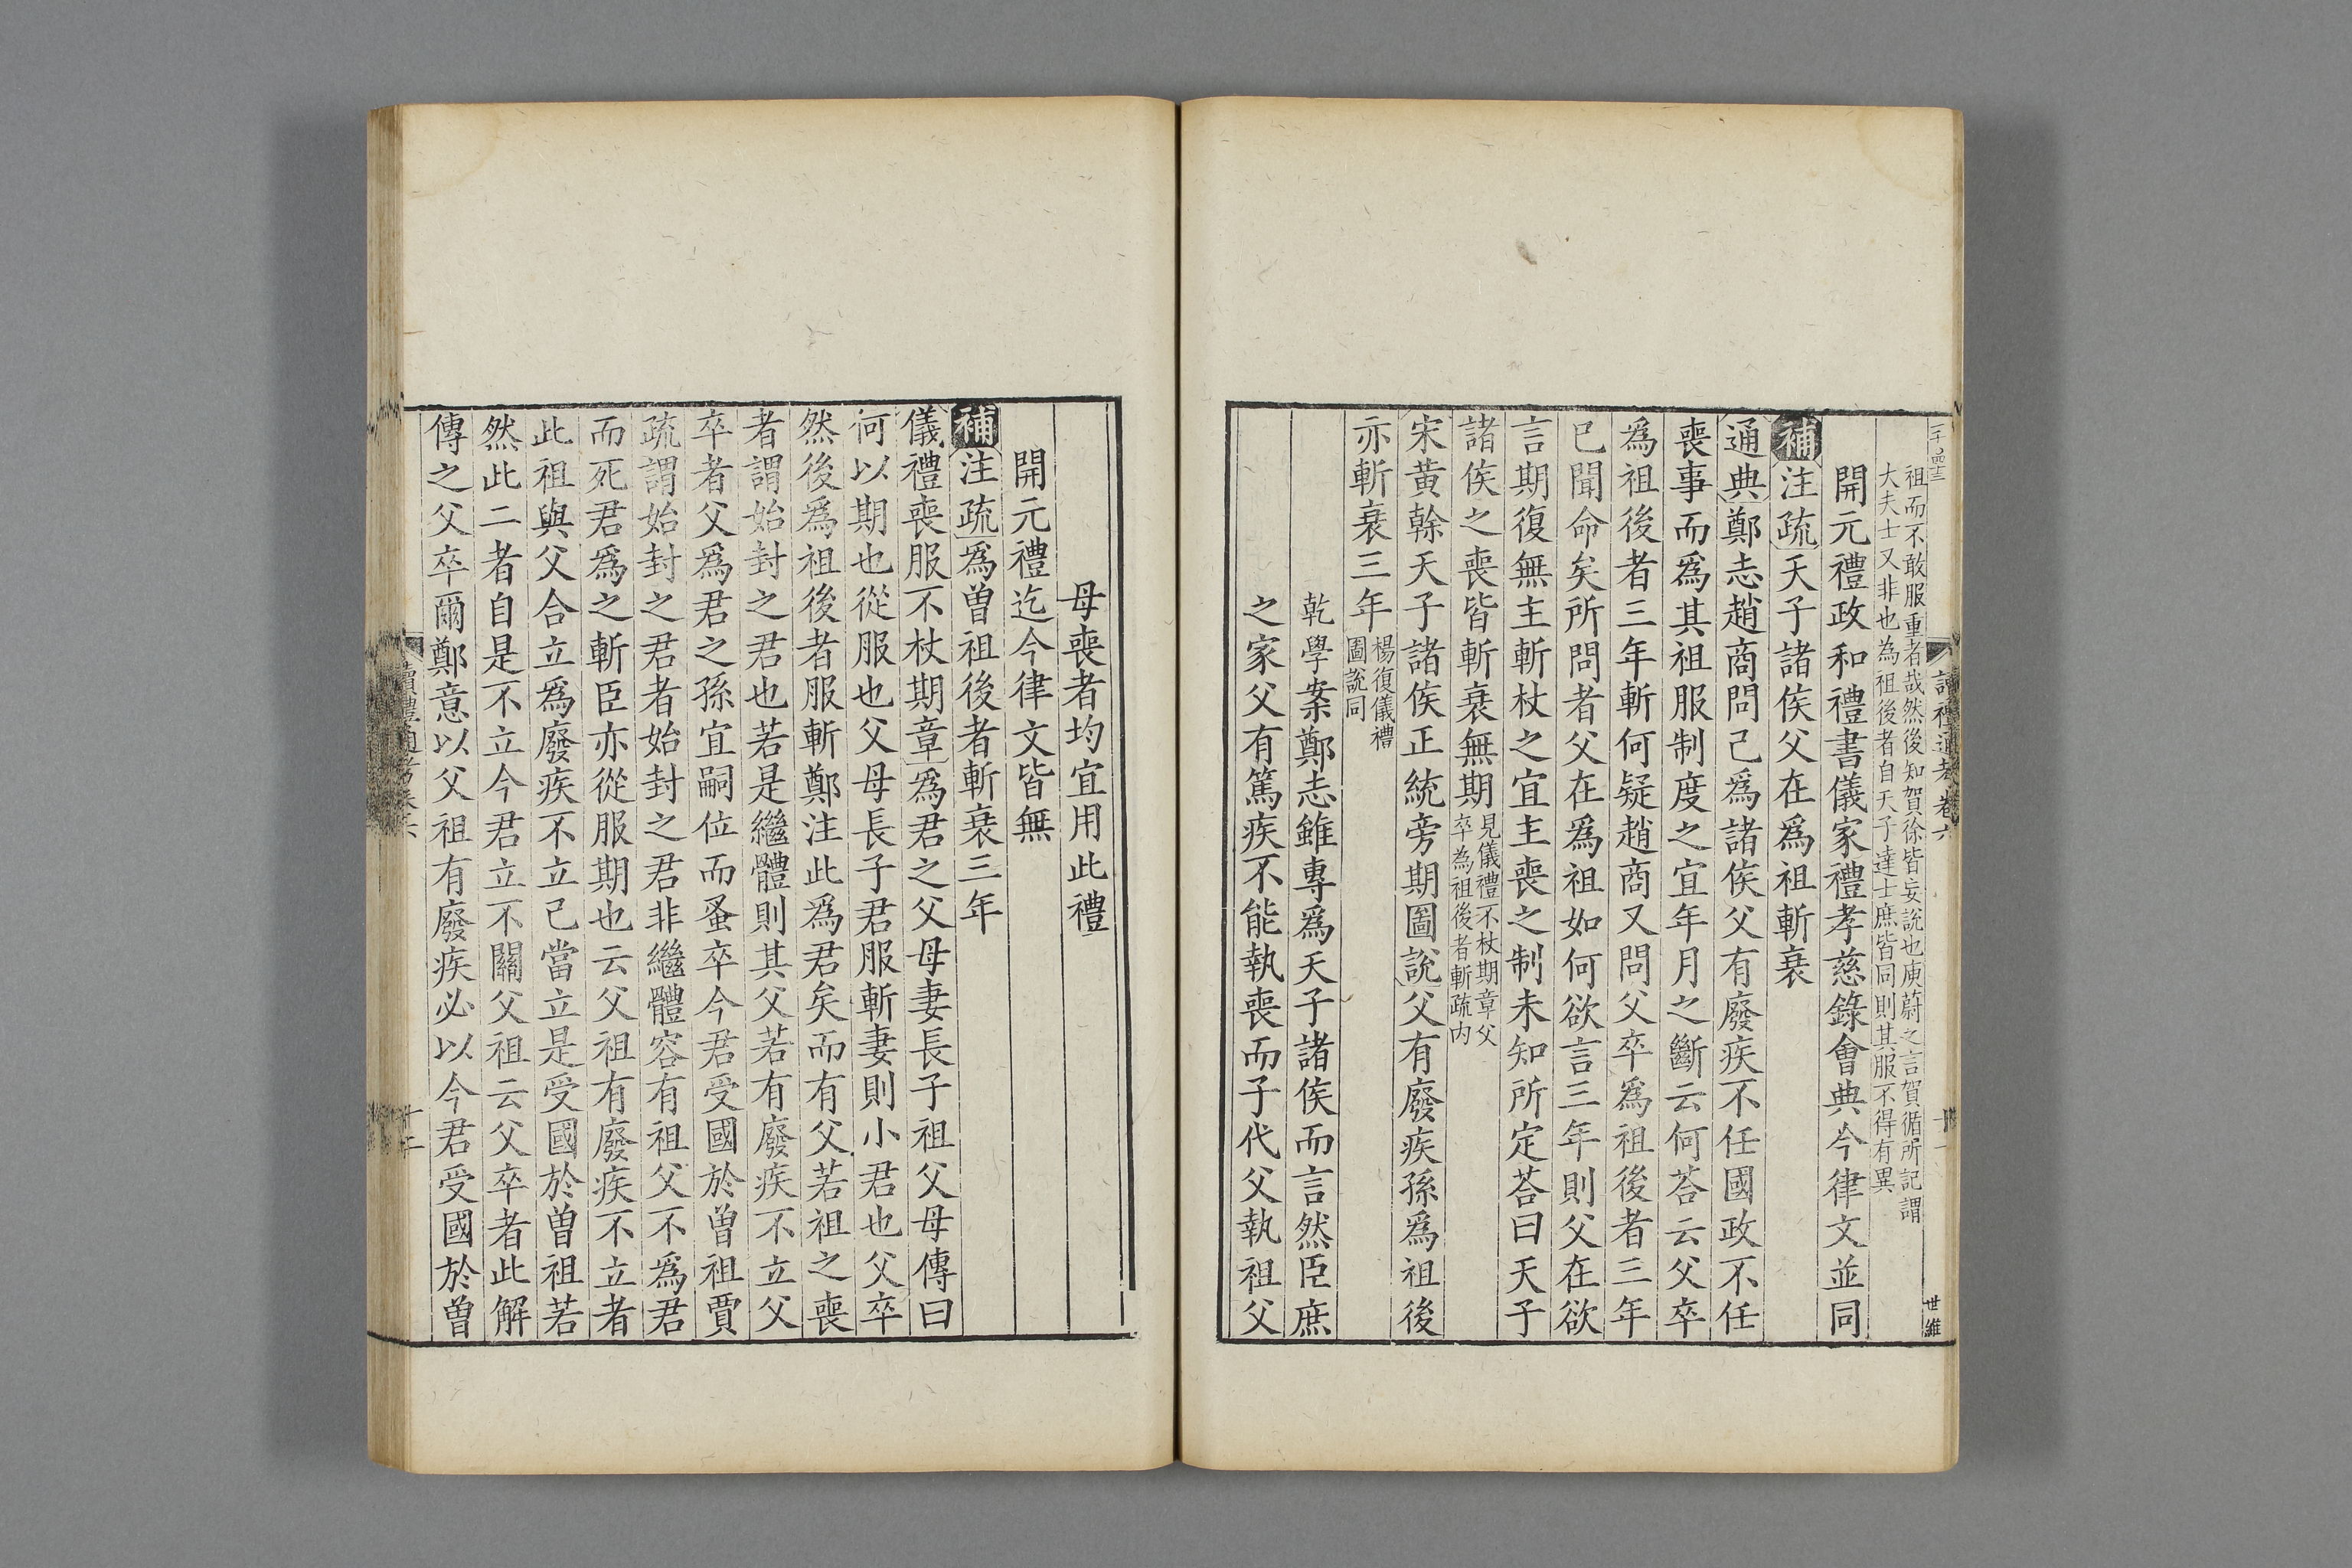 讀禮通考卷六
十一
世維
祖而不敢服重者哉然後知賀徐皆妄說也庾蔚之言賀循所記謂
大夫士又非也為祖後者自天子達士庶皆同則其服不得有異
開元禮政和禮書儀家禮孝慈錄會典今律文並同
補注疏天子諸侯父在爲祖斬衰
通典鄭志趙商問己爲諸侯父有廢疾不任國政不任
喪事而爲其祖服制度之宜年月之斷云何荅云父卒
爲祖後者三年斬何疑趙商又問父卒爲祖後者三年
已聞命矣所問者父在爲祖如何欲言三年則父在欲
言期復無主斬杖之宜主喪之制未知所定荅曰天子
諸侯之喪皆斬衰無期見儀禮不杖期章父
卒為祖後者斬疏內
宋黃榦天子諸侯正統旁期圖說父有廢疾孫爲祖後
亦斬衰三年楊復儀禮
圖說同
乾學案鄭志雖專爲天子諸侯而言然臣庶
之家父有篤疾不能執喪而子代父執祖父
母喪者均宜用此禮
開元禮迄今律文皆無
補注疏爲曾祖後者斬衰三年
儀禮喪服不杖期章爲君之父母妻長子祖父母傳曰
何以期也從服也父母長子君服斬妻則小君也父卒
然後爲祖後者服斬鄭注此爲君矣而有父若祖之喪
者謂始封之君也若是繼體則其父若有廢疾不立父
卒者父爲君之孫宜嗣位而蚤卒今君受國於曾祖賈
疏謂始封之君者始封之君非繼體容有祖父不爲君
而死君爲之斬臣亦從服期也云父祖有廢疾不立者
此祖與父合立爲廢疾不立己當立是受國於曾祖若
然此二者自是不立今君立不關父祖云父卒者此解
傳之父卒爾鄭意以父祖有廢疾必以今君受國於曾
讀禮通考卷六
十二